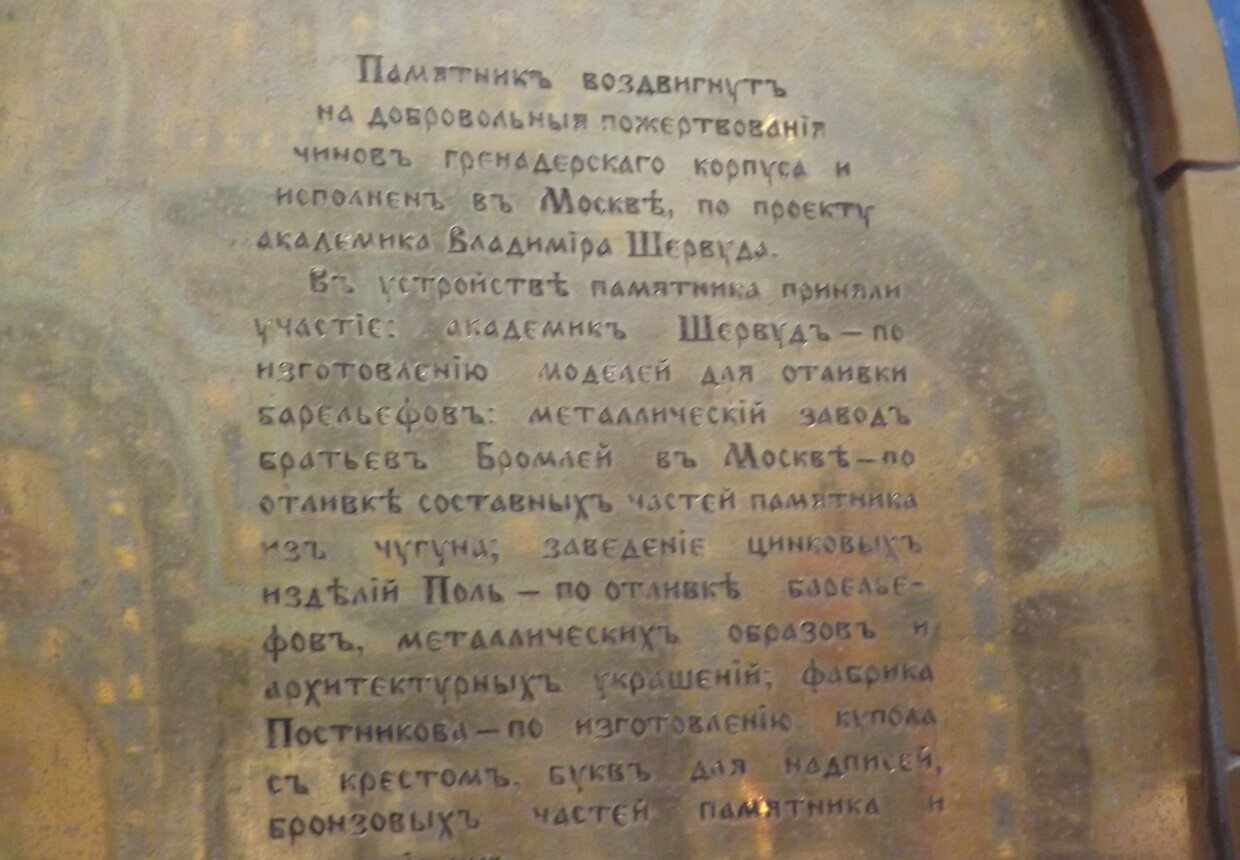 Памятникъ воздвигнутъ
на добровольныя пожертвованія
чиновъ гренадерскаго корпуса и
исполненъ въ Москвѣ, по проекту
академика Владиміра Шервуда.
Въ устройствѣ памятника приняли
участіе: академикъ Шервудъ — по
изготовленію моделей для отливки
барельефовъ: металлическій заводъ
братьевъ Бромлей въ Москвѣ — по
отливкѣ составныхъ частей памятника
изъ чугуна; заведеніе цинковыхъ
издѣлій Поль — по отливкѣ барелье-
фовъ, металлическихъ образовъ и
архитектурныхъ украшеній; фабрика
Постникова — по изготовленію купола
съ крестомъ, буквъ для надписей,
бронзовыхъ частей памятника и